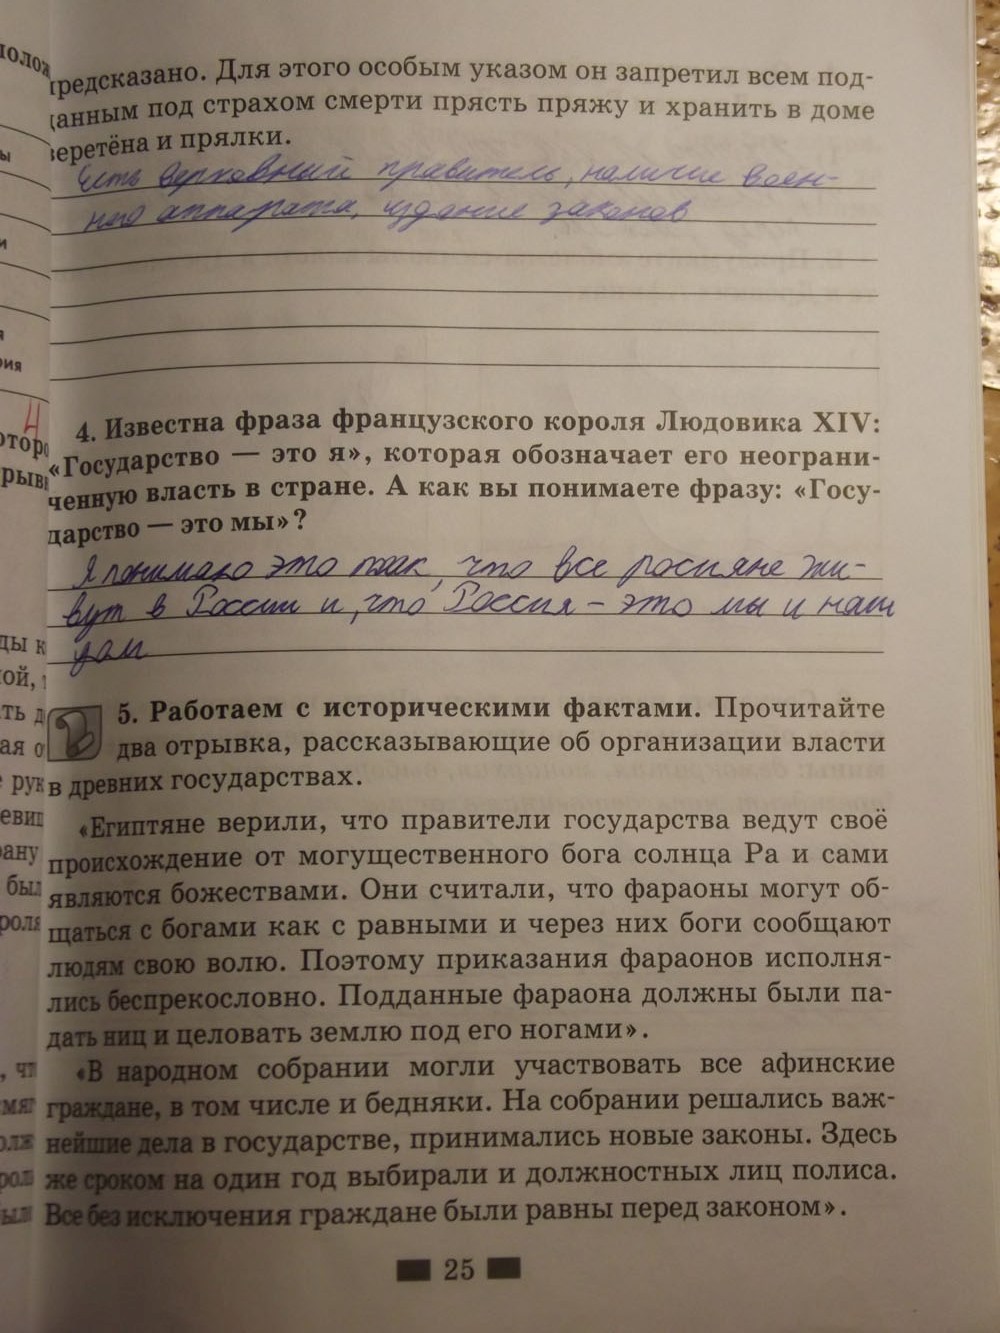 предсказано. Для этого особым указом он запретил всем под-
данным под страхом смерти прясть пряжу и хранить в доме
веретёна и прялки.
Есть верховный правитель, наличие воен-
ного аппарата, издание законов
4. Известна фраза французского короля Людовика XIV:
«Государство — это я», которая обозначает его неограни-
ченную власть в стране. А как вы понимаете фразу: «Госу-
дарство — это мы»?
Я понимаю это так, что все россияне жи-
вут в России и, что Россия – это мы и наш
дом
5. Работаем с историческими фактами. Прочитайте
два отрывка, рассказывающие об организации власти
в древних государствах.
«Египтяне верили, что правители государства ведут своё
происхождение от могущественного бога солнца Ра и сами
являются божествами. Они считали, что фараоны могут об-
щаться с богами как с равными и через них боги сообщают
людям свою волю. Поэтому приказания фараонов исполня-
лись беспрекословно. Подданные фараона должны были па-
дать ниц и целовать землю под его ногами».
«В народном собрании могли участвовать все афинские
граждане, в том числе и бедняки. На собрании решались важ-
нейшие дела в государстве, принимались новые законы. Здесь
же сроком на один год выбирали и должностных лиц полиса.
Все без исключения граждане были равны перед законом».
25